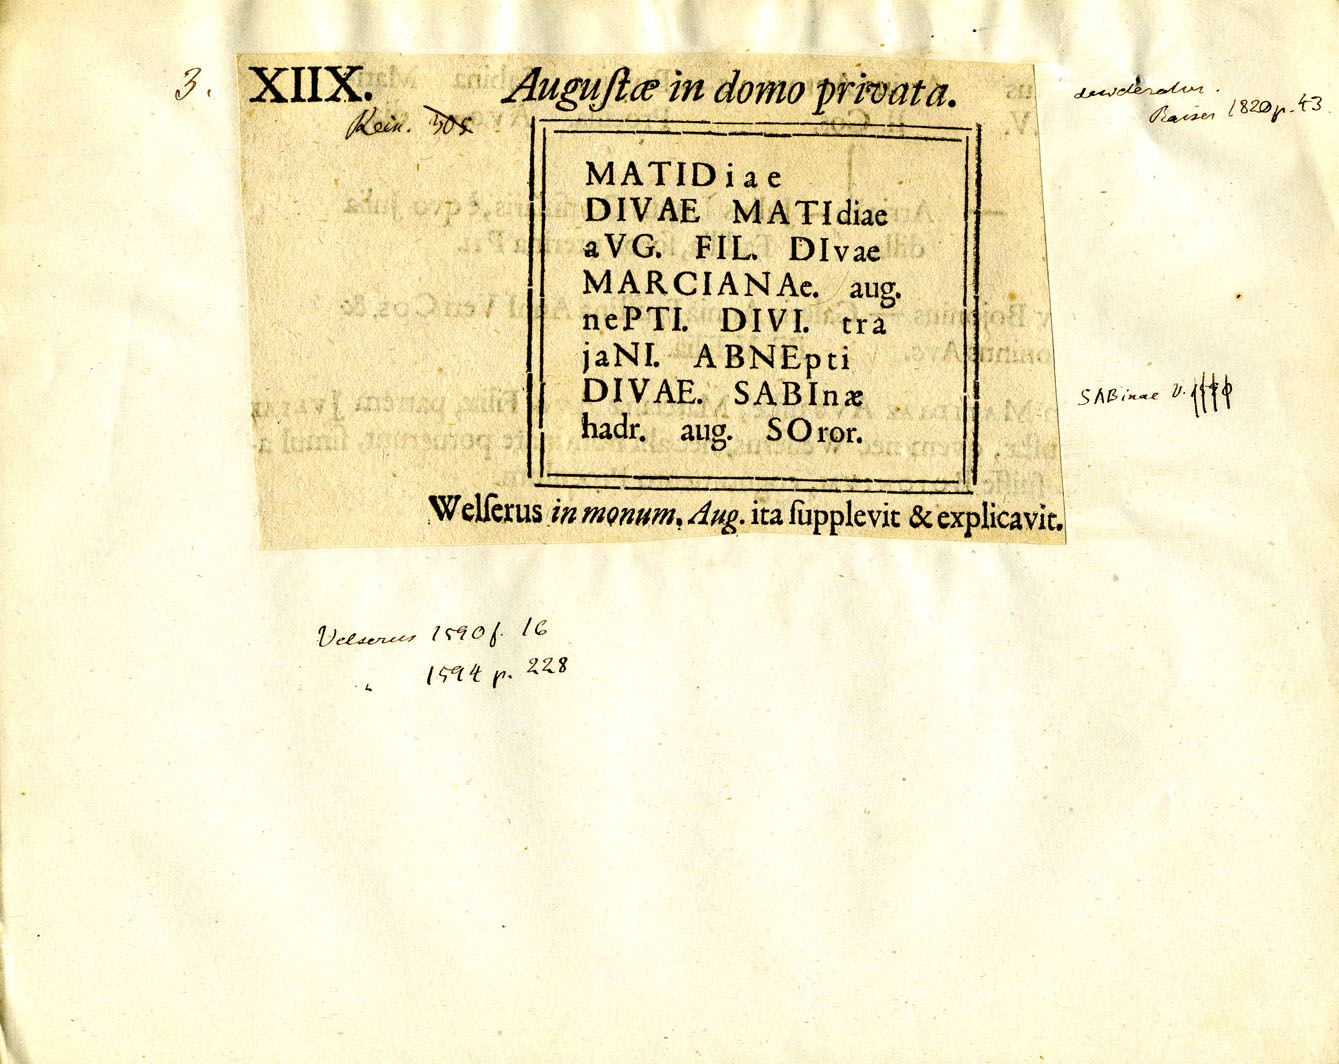 3. XIIX. Auguſtæ in domo privata. desideratur.
Rein. 305 Raiser 1820 p. 43.
MATIDiae
DIVAE MATIdiae
aVG. FIL. DIvae
MARCIANAe. aug.
nePTI. DIVI. tra
jaNI. ABNEpti
DIVAE. SABInæ SABinae V.
hadr. aug. SOror.
Welſerus in monum. Aug. ita ſupplevit & explicavit.
Velserus 1590 f. 16
„ 1594 p. 228